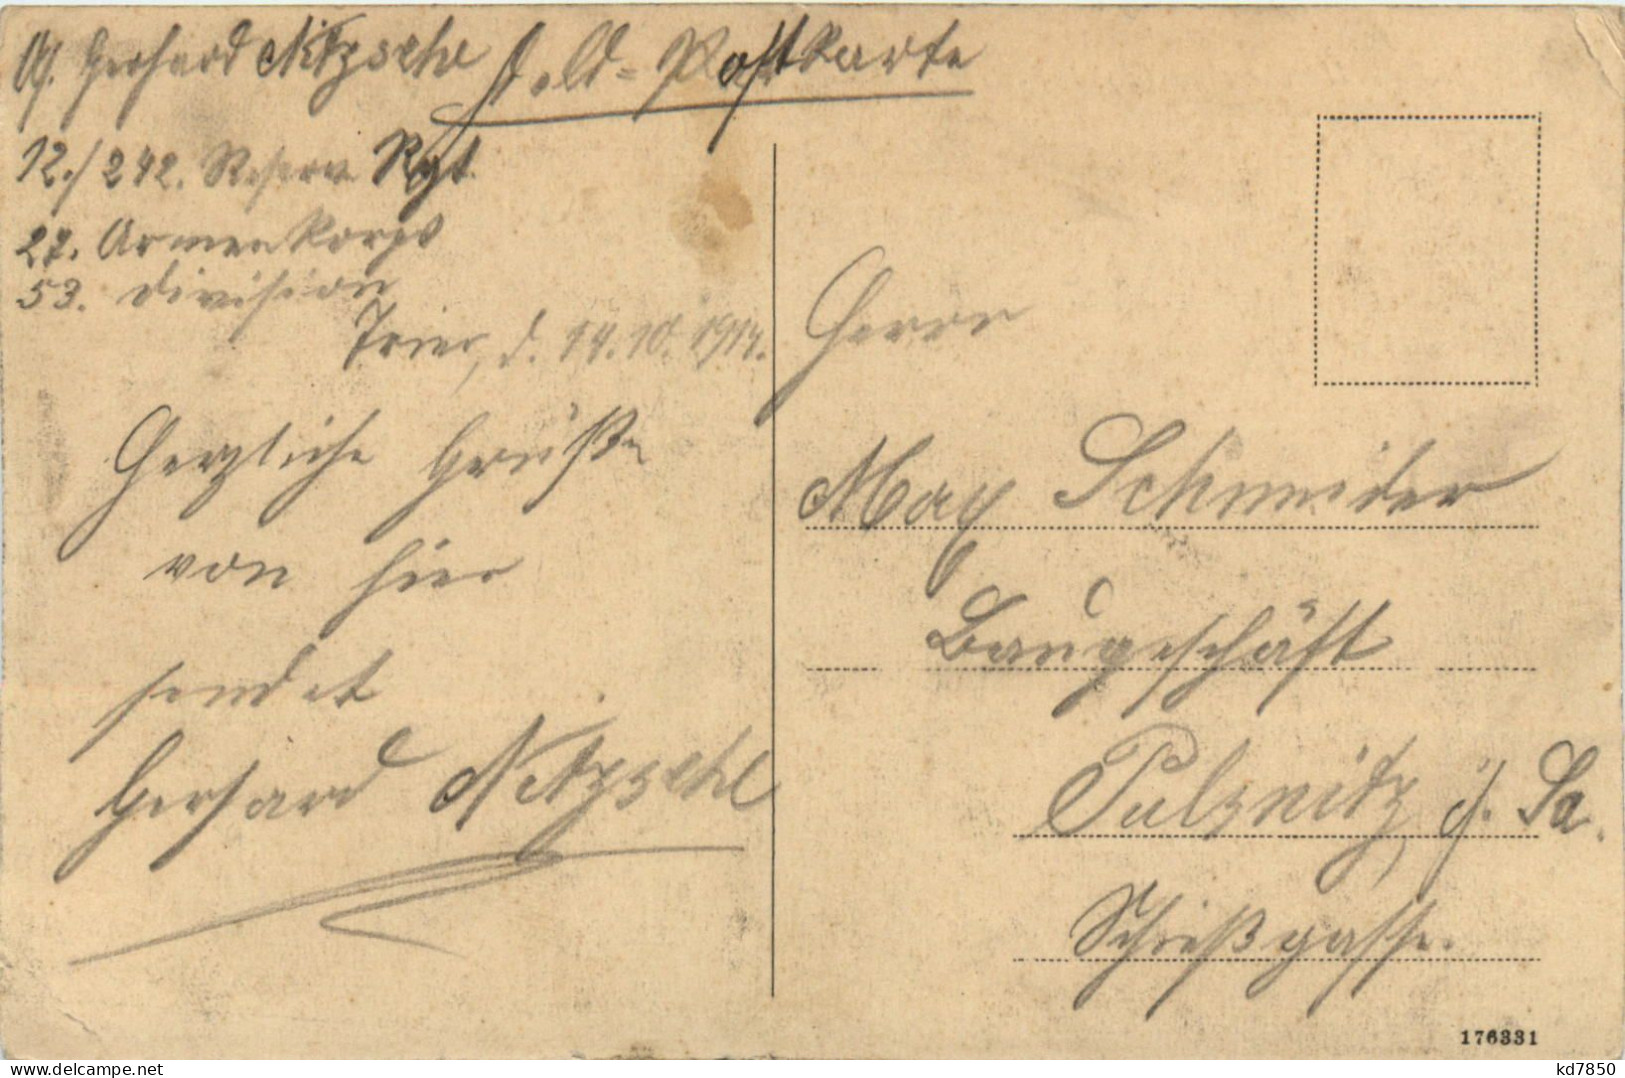 Gerhard Nitzsche Feld-Postkarte
12./242. Reserve Rgt.
27. Armeekorps
53. Division
Trier, d. 14.10.1914.
Herzliche Grüße
von hier
sendet
Gerhard Nitzsche
Herrn
Max Schneider
Baugeschäft
Pulsnitz i. Sa.
Schießgasse.
176331
delcampe.net
kd7850